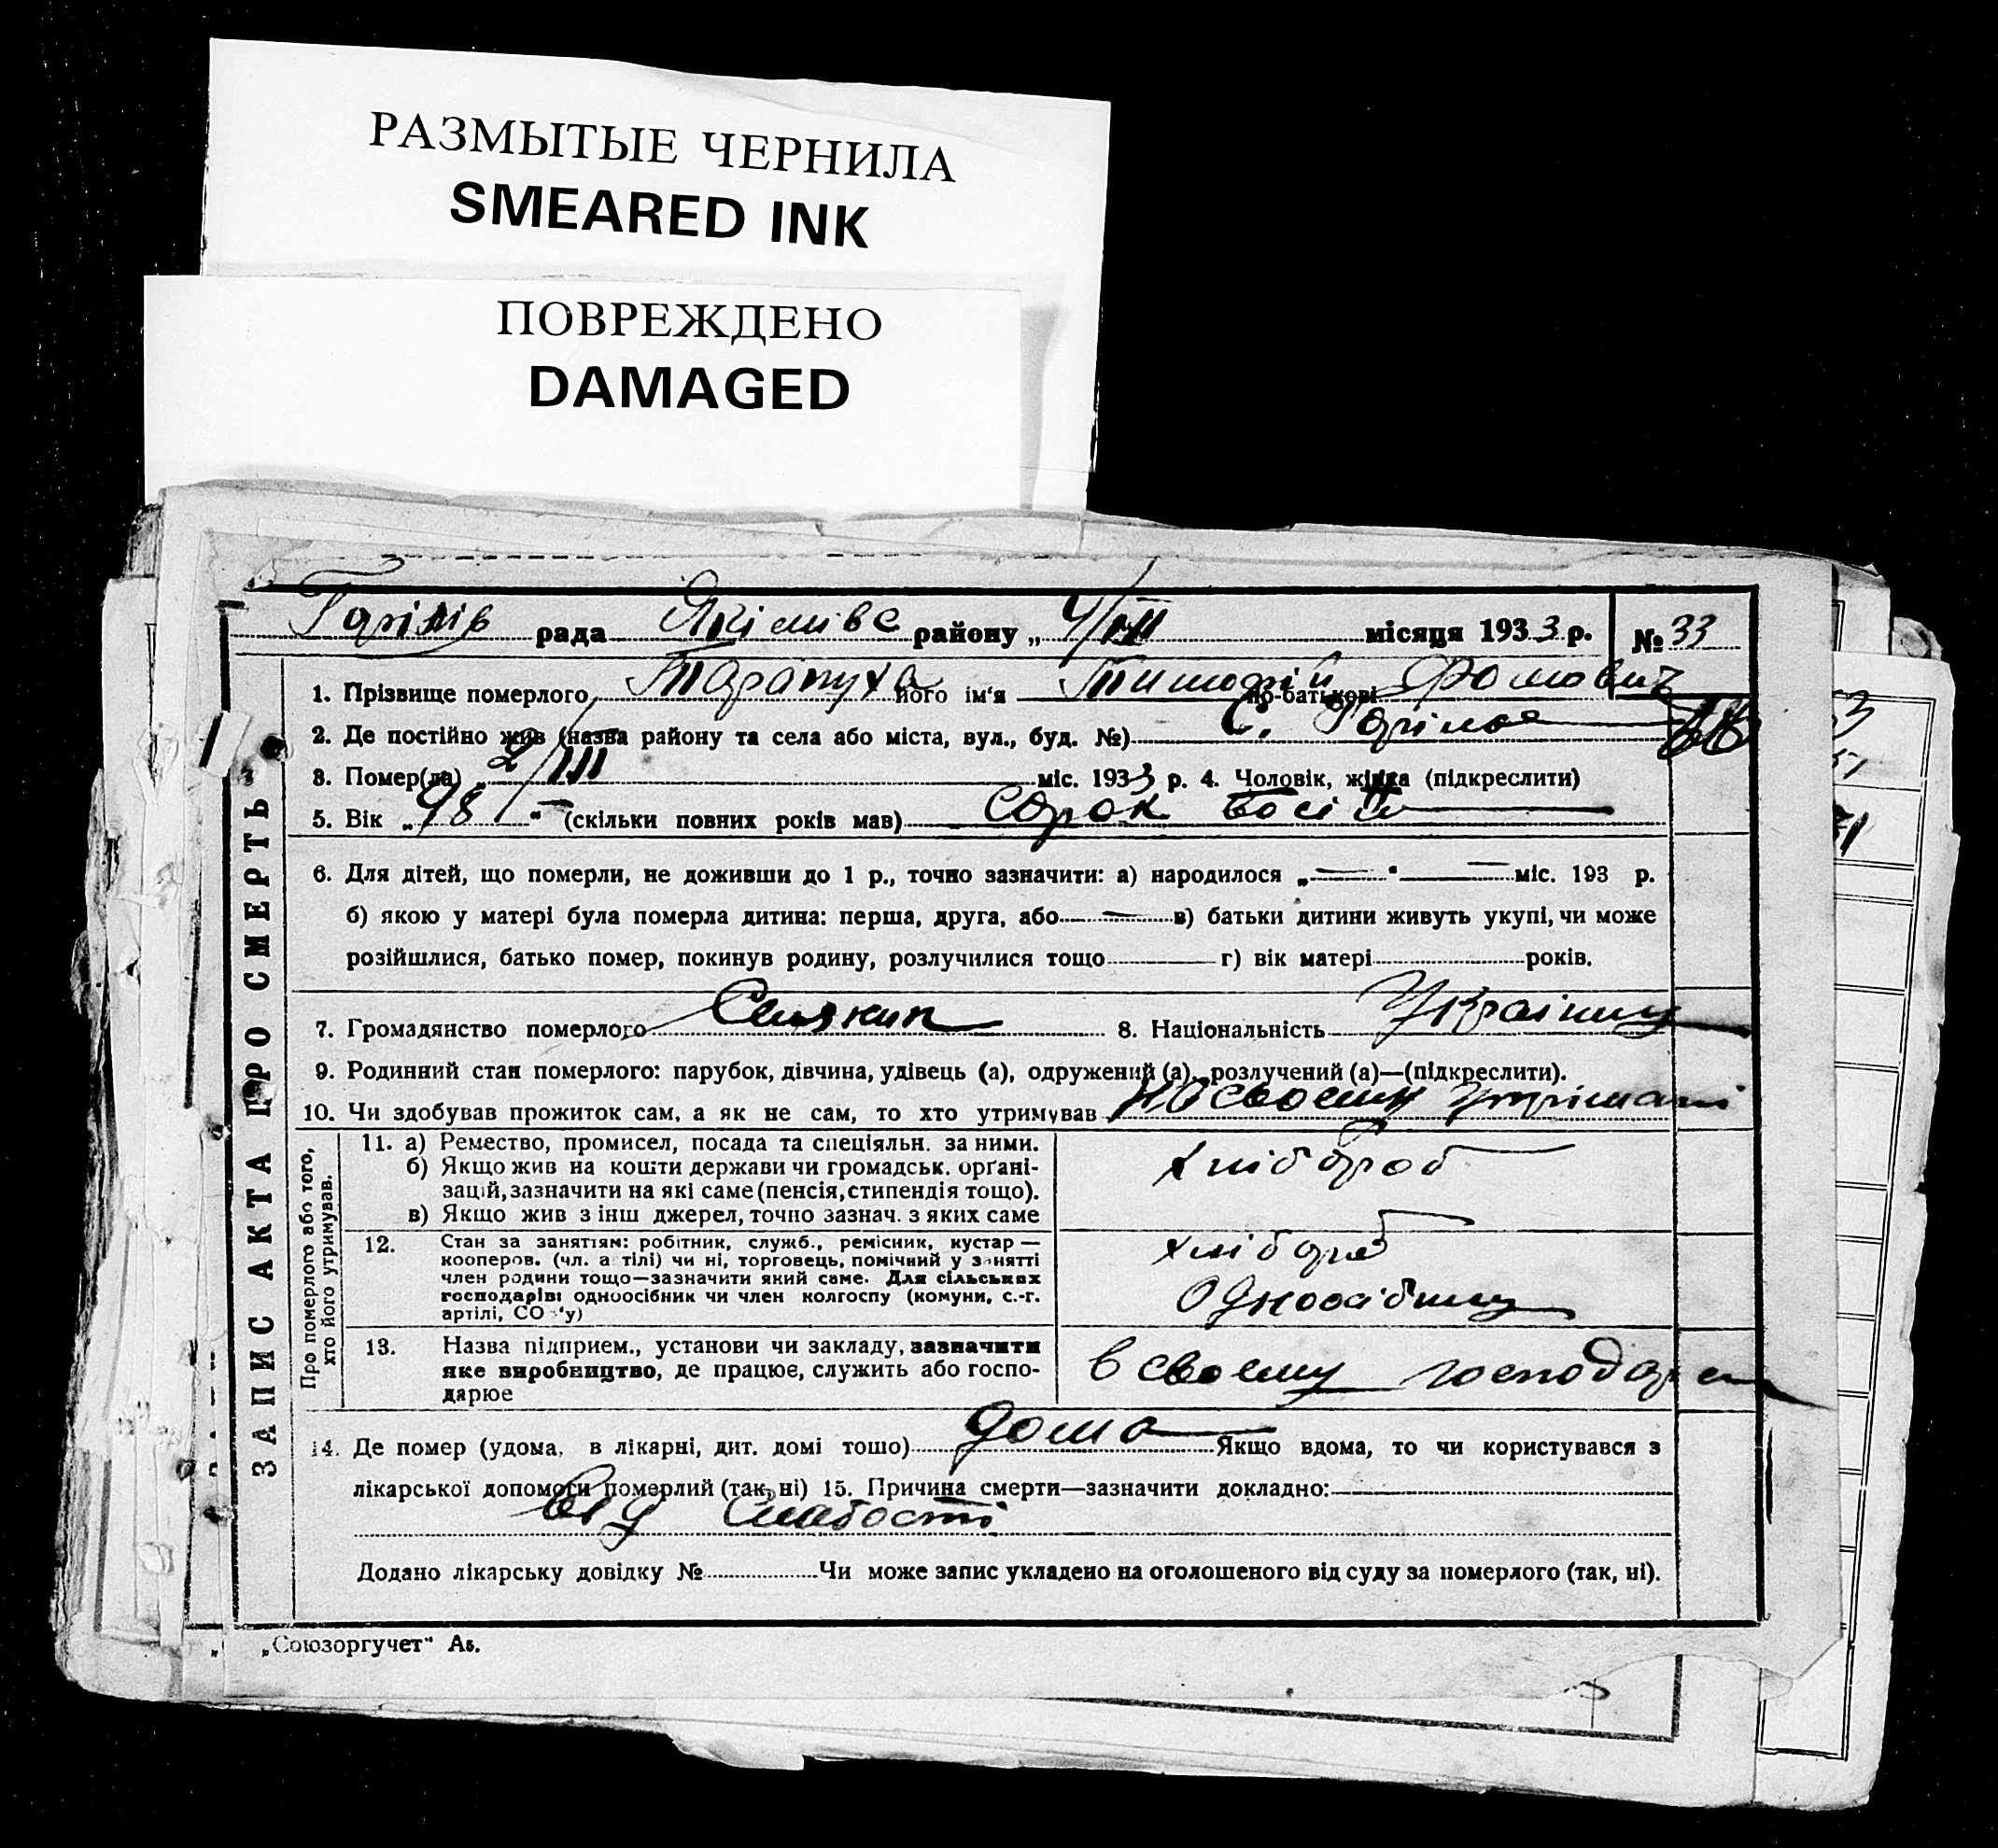 РАЗМЫТЫЕ ЧЕРНИЛА
SMEARED INK
ПОВРЕЖДЕНО
DAMAGED
рада Якімівс району „ 4/III місяця 1933 р. № 33
1. Прізвище померлого Тарапуха його ім'я Тимофій по-батькові Фомович
2. Де постійно жив (назва району та села або міста, вул., буд. №) С.
3. Помер(ла) „ 2/III міс. 1933 р. 4. Чоловік, жінка (підкреслити)
5. Вік „ 48 “ (скільки повних років мав) сорок восім
6. Для дітей, що померли, не доживши до 1 р., точно зазначити: а) народилося „ — “ — міс. 193 р.
б) якою у матері була померла дитина: перша, друга, або — в) батьки дитини живуть укупі, чи може
розійшлися, батько помер, покинув родину, розлучилися тощо г) вік матері років.
7. Громадянство померлого Селянин 8. Національність Українец
9. Родинний стан померлого: парубок, дівчина, удівець (а), одружений (а), розлучений (а)—(підкреслити).
10. Чи здобував прожиток сам, а як не сам, то хто утримував на своему утрімані
ЗАПИС АКТА ПРО СМЕРТЬ
Про померлого або того, хто його утримував.
11. а) Ремество, промисел, посада та спеціяльн. за ними.
б) Якщо жив на кошти держави чи громадськ. орґані-
зацій, зазначити на які саме (пенсія, стипендія тощо).
в) Якщо жив з інш джерел, точно зазнач. з яких саме
хлібороб
12. Стан за заняттям: робітник, служб., ремісник, кустар —
кооперов. (чл. а тілі) чи ні, торговець, помічний у занятті
член родини тощо—зазначити який саме. Для сільських
господарів: одноосібник чи член колгоспу (комуни, с.-г.
артілі, СО 'у)
хлібороб
Одноосібник
13. Назва підприєм., установи чи закладу, зазначити
яке виробництво, де працює, служить або госпо-
дарює
в своему господарст
14. Де помер (удома, в лікарні, дит. домі тощо) дома Якщо вдома, то чи користувався з
лікарської допомоги померлий (так, ні) 15. Причина смерти—зазначити докладно:
від слабості
Додано лікарську довідку № Чи може запис укладено на оголошеного від суду за померлого (так, ні).
„Союзоргучет“ Ав.